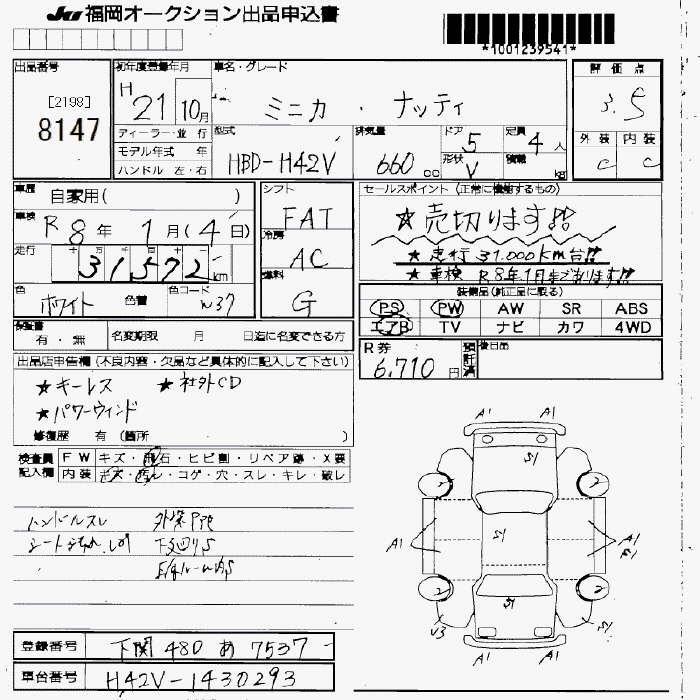 JU 福岡オークション出品申込書
*1001239541*
出品番号
[2198]
8147
初年度登録年月
H 21 10月
車名・グレード
ミニカ ・ ナッティ
評価点
3.5
ディーラー・並 行
モデル年式 年
ハンドル 左・右
型式
HBD-H42V
排気量
660 cc
ドア
5
形状
V
定員
4 人
積載
kg
外装 内装
C C
車歴
自家用( )
車検
R 8年 1月(4日)
走行
十 万 千 百 十 一
31572 km
色
ホワイト 色替
色コード
W37
シフト
FAT
冷房
AC
燃料
G
セールスポイント (正常に機能するもの)
★売切ります!!
★走行 31.000km台!!
★車検 R8年1月まであります!!
装備品(純正品に限る)
PS PW AW SR ABS
エアB TV ナビ カワ 4WD
保証書
有・無
名変期限 月 日迄に名変できる方
R券
6,710円
預託済
後日品
出品店申告欄(不良内容・欠品など具体的に記入して下さい)
★キーレス ★社外CD
★パワーウィンド
修復歴 有(箇所 )
検査員
記入欄
FW キズ・飛石・ヒビ割・リペア跡・X要
内装 キズ・汚れ・コゲ・穴・スレ・キレ・破レ
ハンドルスレ
下回りS
A1 A1
S1
2 2
A1 S1 A1
2 2
S1
V3
A1 A1
登録番号 下関 480 あ 7537
車台番号 H42V-1430293